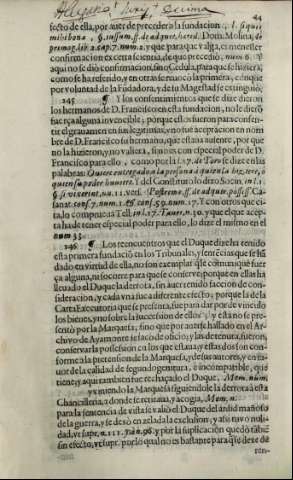 44
fecto de ella, por auer de preceder a la fundacion, l. si quis
Dom. Molina, de
primog. lib. 2. cap. 7. num. 2. y que para que valga, es menester
confirmacion ex certa sciencia, de que precede, num. 6. Y
aqui no se dió confirmacion, sino Cedula, para que se hiziera,
como se ha referido, y en otras se reuocò la primera, conque
por voluntad de la Fundadora, y de su Magestad se extinguiò.
245 ¶ Y los consentimientos que se dize dieron
los hermanos de D. Francisco en esta fundacion, no le dieron
fuerça alguna inreuocable, porque estos fueron para consen-
tir el grauamen en sus legitimas, y no fue aceptacion en nom-
bre de D. Francisco su hermano, que estaua ausente, y por que
no la hizieron, y no valiera, sino es con especial poder de D.
Francisco para ello, como por la l. 17. de Toro se dize en las
palabras: Ouiere entregado a la persona à quien la hiziere, o
à quien su poder huuiere. Y del Constituto lo dixo Socin. in l. 1.
Y con otros que ci-
ta, lo compone assi Tell. in l. 17. Tauri, n. 30. y que el que acep-
ta ha de tener especial poder para ello, lo dize el mismo en el
num. 33.
246 ¶ Los reencuentros que el Duque dize ha tenido
esta primera fundació en los Tribunales, y sentécias que se há
dado en virtud de ella, no son exemplar q̃ le comunique fuer-
ça alguna, ni socorre para que se conserve, porque en ellas ha
lleuado el Duque la derrota, sin auer tenido faccion de con-
sideracion, y cada vna fuè a diferente efecto; porque la de la
Carta Executoria que se presenta, fue para dar por de vinculo
los bienes, y no sobre la succession de ellos; y esta no se pre-
sentò por la Marquesa, sino que por auerse hallado en el Ar-
chivo de Ayamonte se sacò de oficio, y las de tenuta, fueron,
conservarla possession en los que estaua, y estas dos son con-
forme a la pretension de la Marquesa, y de sus autores, y en fa-
uor de la calidad de segundogenitura, è incompatible, que
tiene; y aqui tambien fue rechaçado el Duque, Mem. num.
y viniendo la Marquesa siguiendole la derrota à esta
Chancilleria, adonde se retiraua, y acogia, Mem. n.
para la sentencia de vista se valiò el Duque del ardid mañoso
de la guerra, y se dexò en zelada la exclusion; y assi tuvo nuli-
dad, vt supr. n. 111. y à n. 96. y por la suplicacion quedó tābié
sin efecto, vt supr. por lo qual no es bastante para q̃ se dexe de
ren-